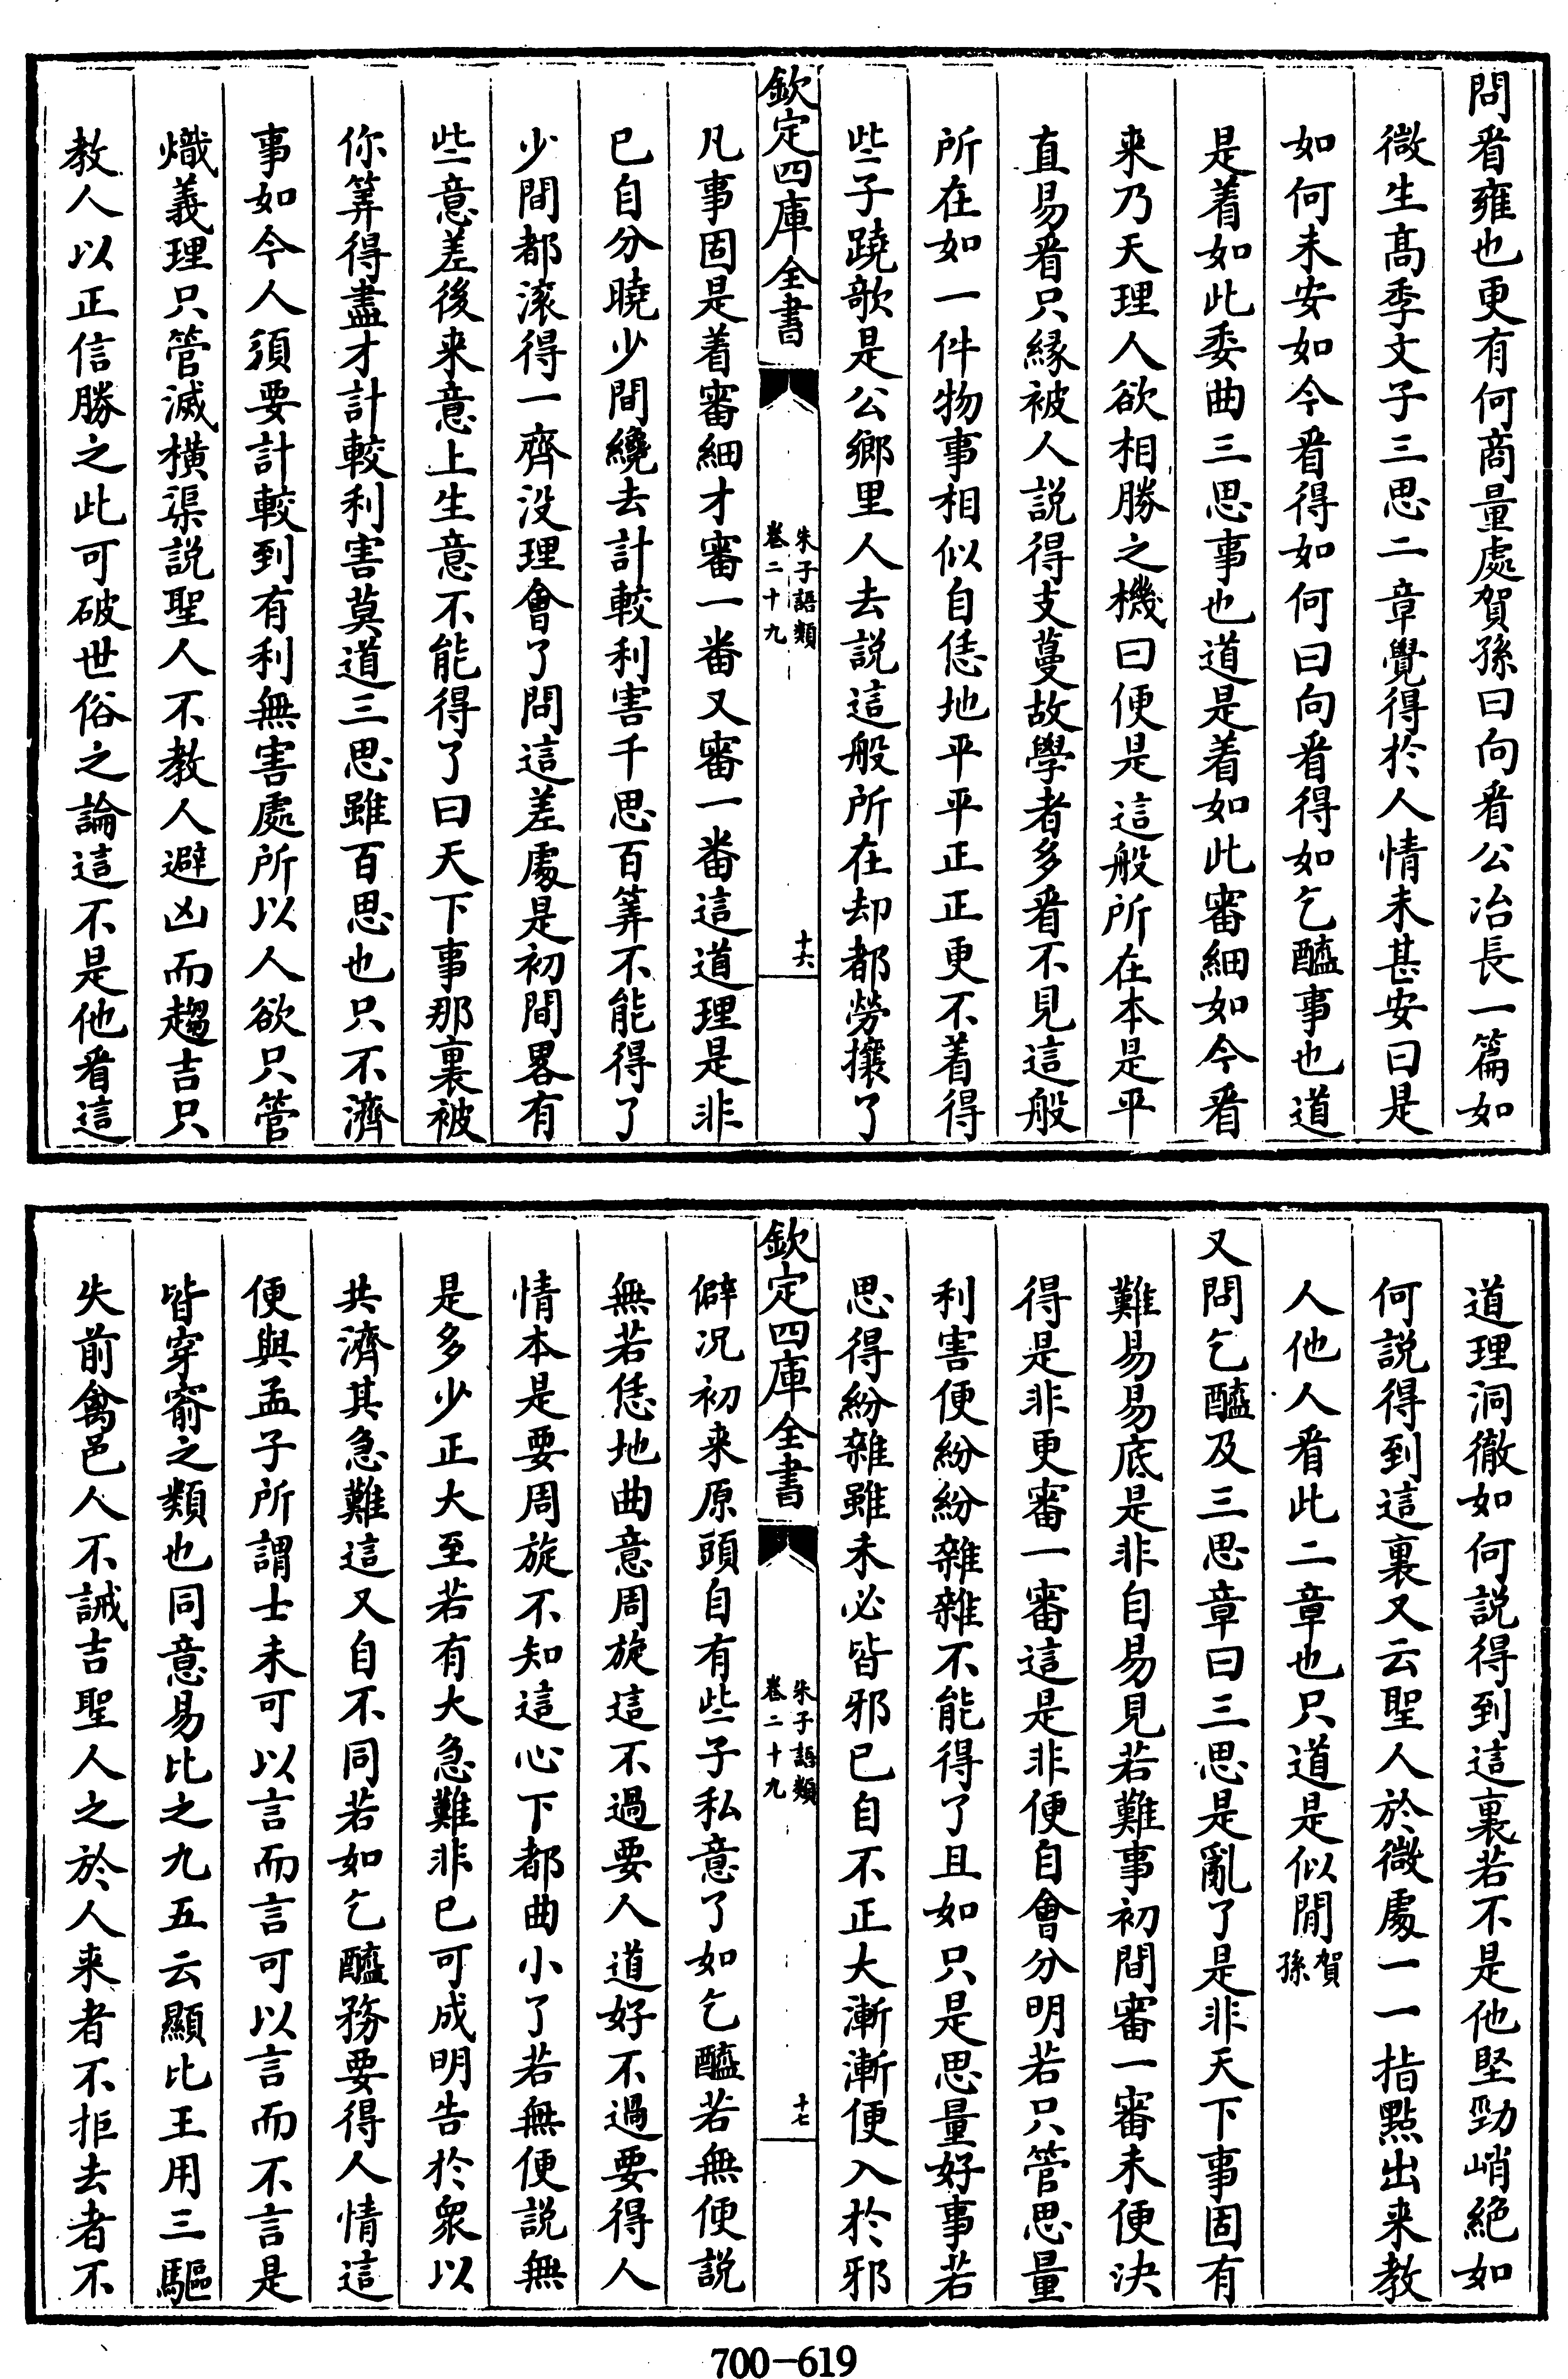 問看雍也更有何商量處賀孫曰向看公冶長一篇如
微生髙季文子三思二章覺得於人情未甚安曰是
如何未安如今看得如何曰向看得如乞醯事也道
是着如此委曲三思事也道是着如此審細如今看
来乃天理人欲相勝之機曰便是這般所在本是平
直易看只緣被人說得支蔓故學者多看不見這般
所在如一件物事相似自恁地平平正正更不着得
些子蹺欹是公鄉里人去說這般所在却都勞攘了
欽定四庫全書
朱子語類
卷二十九
十六
凡事固是着審細才審一番又審一番這道理是非
已自分曉少間纔去計較利害千思百筭不能得了
少間都滚得一齊没理會了問這差處是初間畧有
些意差後来意上生意不能得了曰天下事那裏被
你筭得盡才計較利害莫道三思雖百思也只不濟
事如今人須要計較到有利無害處所以人欲只管
熾義理只管滅橫渠説聖人不教人避凶而趨吉只
教人以正信勝之此可破世俗之論這不是他看這
道理洞徹如何説得到這裏若不是他堅勁峭絶如
何説得到這裏又云聖人於微處一一指點出来教
人他人看此二章也只道是似閒賀孫
又問乞醯及三思章曰三思是亂了是非天下事固有
難易易底是非自易見若難事初間審一審未便決
得是非更審一審這是非便自會分明若只管思量
利害便紛紛雜雜不能得了且如只是思量好事若
思得紛雜雖未必皆邪已自不正大漸漸便入於邪
欽定四庫全書
朱子語類
卷二十九
十七
僻况初来原頭自有些子私意了如乞醯若無便説
無若恁地曲意周旋這不過要人道好不過要得人
情本是要周旋不知這心下都曲小了若無便説無
是多少正大至若有大急難非已可成明告於衆以
共濟其急難這又自不同若如乞醯務要得人情這
便與孟子所謂士未可以言而言可以言而不言是
皆穿窬之類也同意易比之九五云顯比王用三驅
失前禽邑人不誡吉聖人之於人来者不拒去者不
700-619